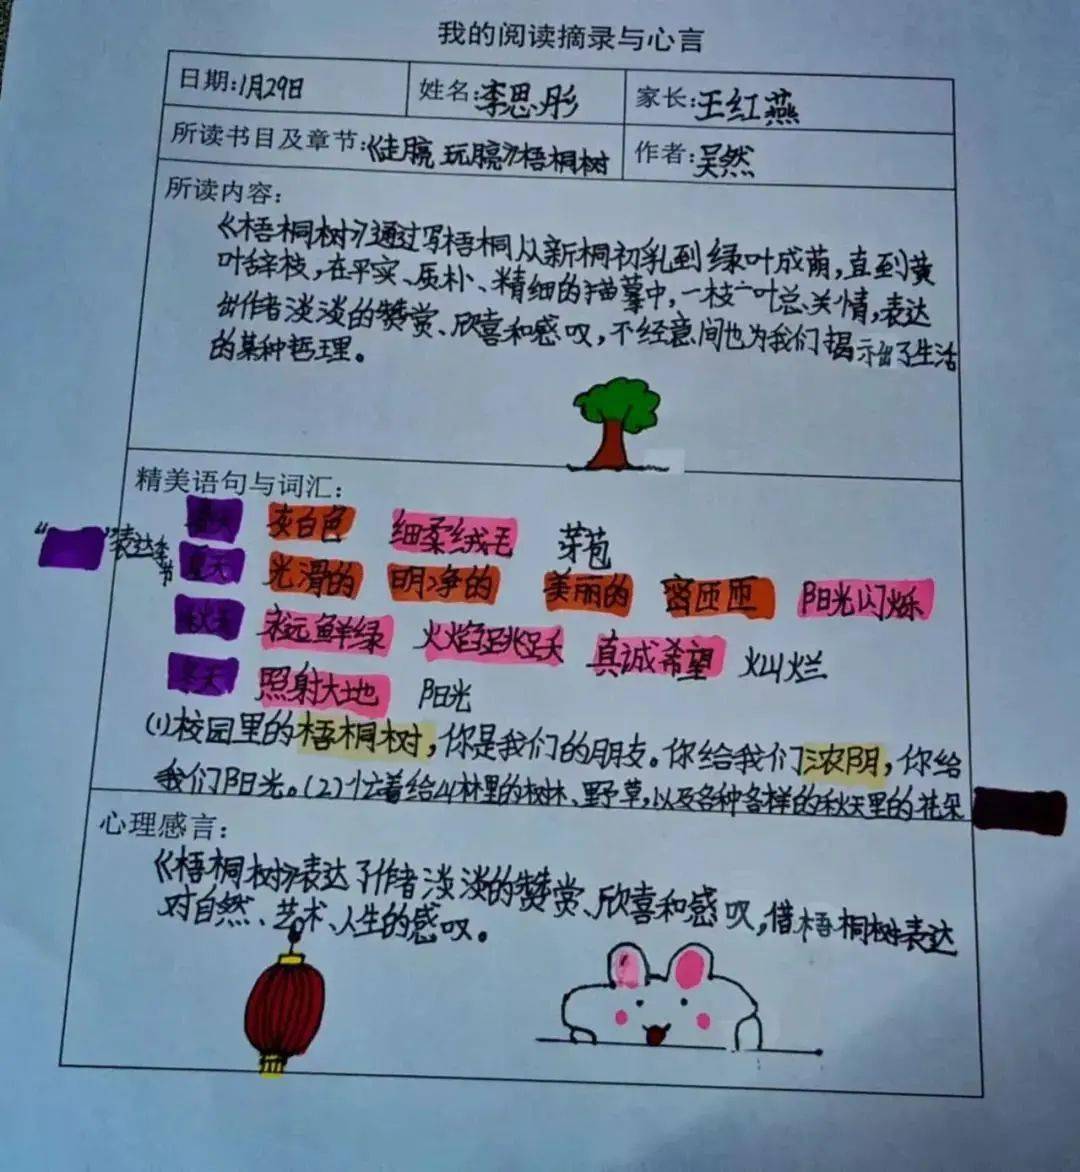 我的阅读摘录与心言
日期:1月29日 姓名:李思彤 家长:王红燕
所读书目及章节:《走脘 玩脘》梧桐树 作者:吴然
所读内容:
《梧桐树》通过写梧桐从新桐初乳到绿叶成荫,直到黄
叶辞枝,在平实、质朴、精细的描摹中,一枝一叶总关情,表达
出作者淡淡的赞赏、欣喜和感叹,不经意间也为我们揭示出了生活
的某种哲理。
精美语句与词汇:
春天 灰白色 细柔绒毛 芽苞
“ ”表达季节
夏天 光滑的 明净的 美丽的 密匝匝 阳光闪烁
秋天 永远鲜绿 火焰跳跃 真诚希望 灿烂
冬天 照射大地 阳光
(1)校园里的梧桐树,你是我们的朋友。你给我们浓阴,你给
我们阳光。(2)忙着给山林里的树林、野草,以及各种各样的秋天里的花朵
心理感言:
《梧桐树》表达了作者淡淡的赞赏、欣喜和感叹,借梧桐树表达
对自然、艺术、人生的感叹。